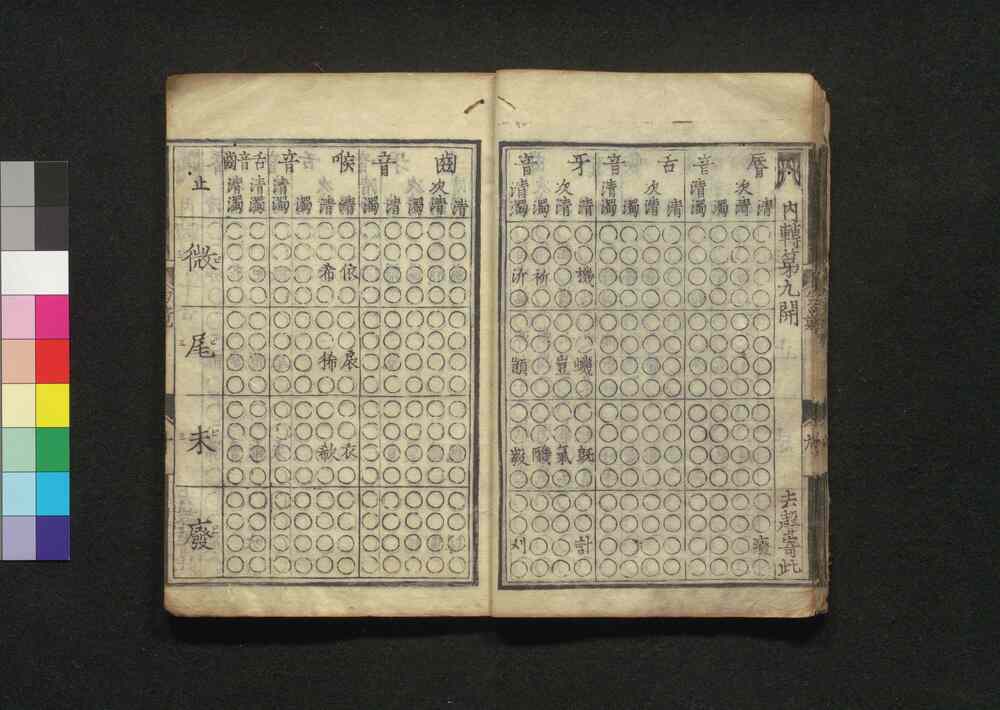 內轉第九開
去聲寄此
脣音
舌音
牙音
清 次清 濁 清濁
清 次清 濁 清濁
清 次清 濁 清濁
機 祈 沂
蟣 豈 顗
既 氣 毅
計 刈
齒音
喉音
舌音齒音
清 次清 濁 清 濁
清 次清 濁 清濁
清濁 清濁
依 希
扆 狶
衣 欷
止
微
尾
未
廢